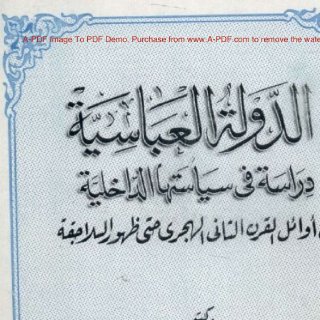 A-PDF Image To PDF Demo. Purchase from www.A-PDF.com to remove the wate
الدولة العباسية
دراسة فى سياستها الداخلية
أوائل القرن الثانى الهجرى حتى ظهور السلاجقة